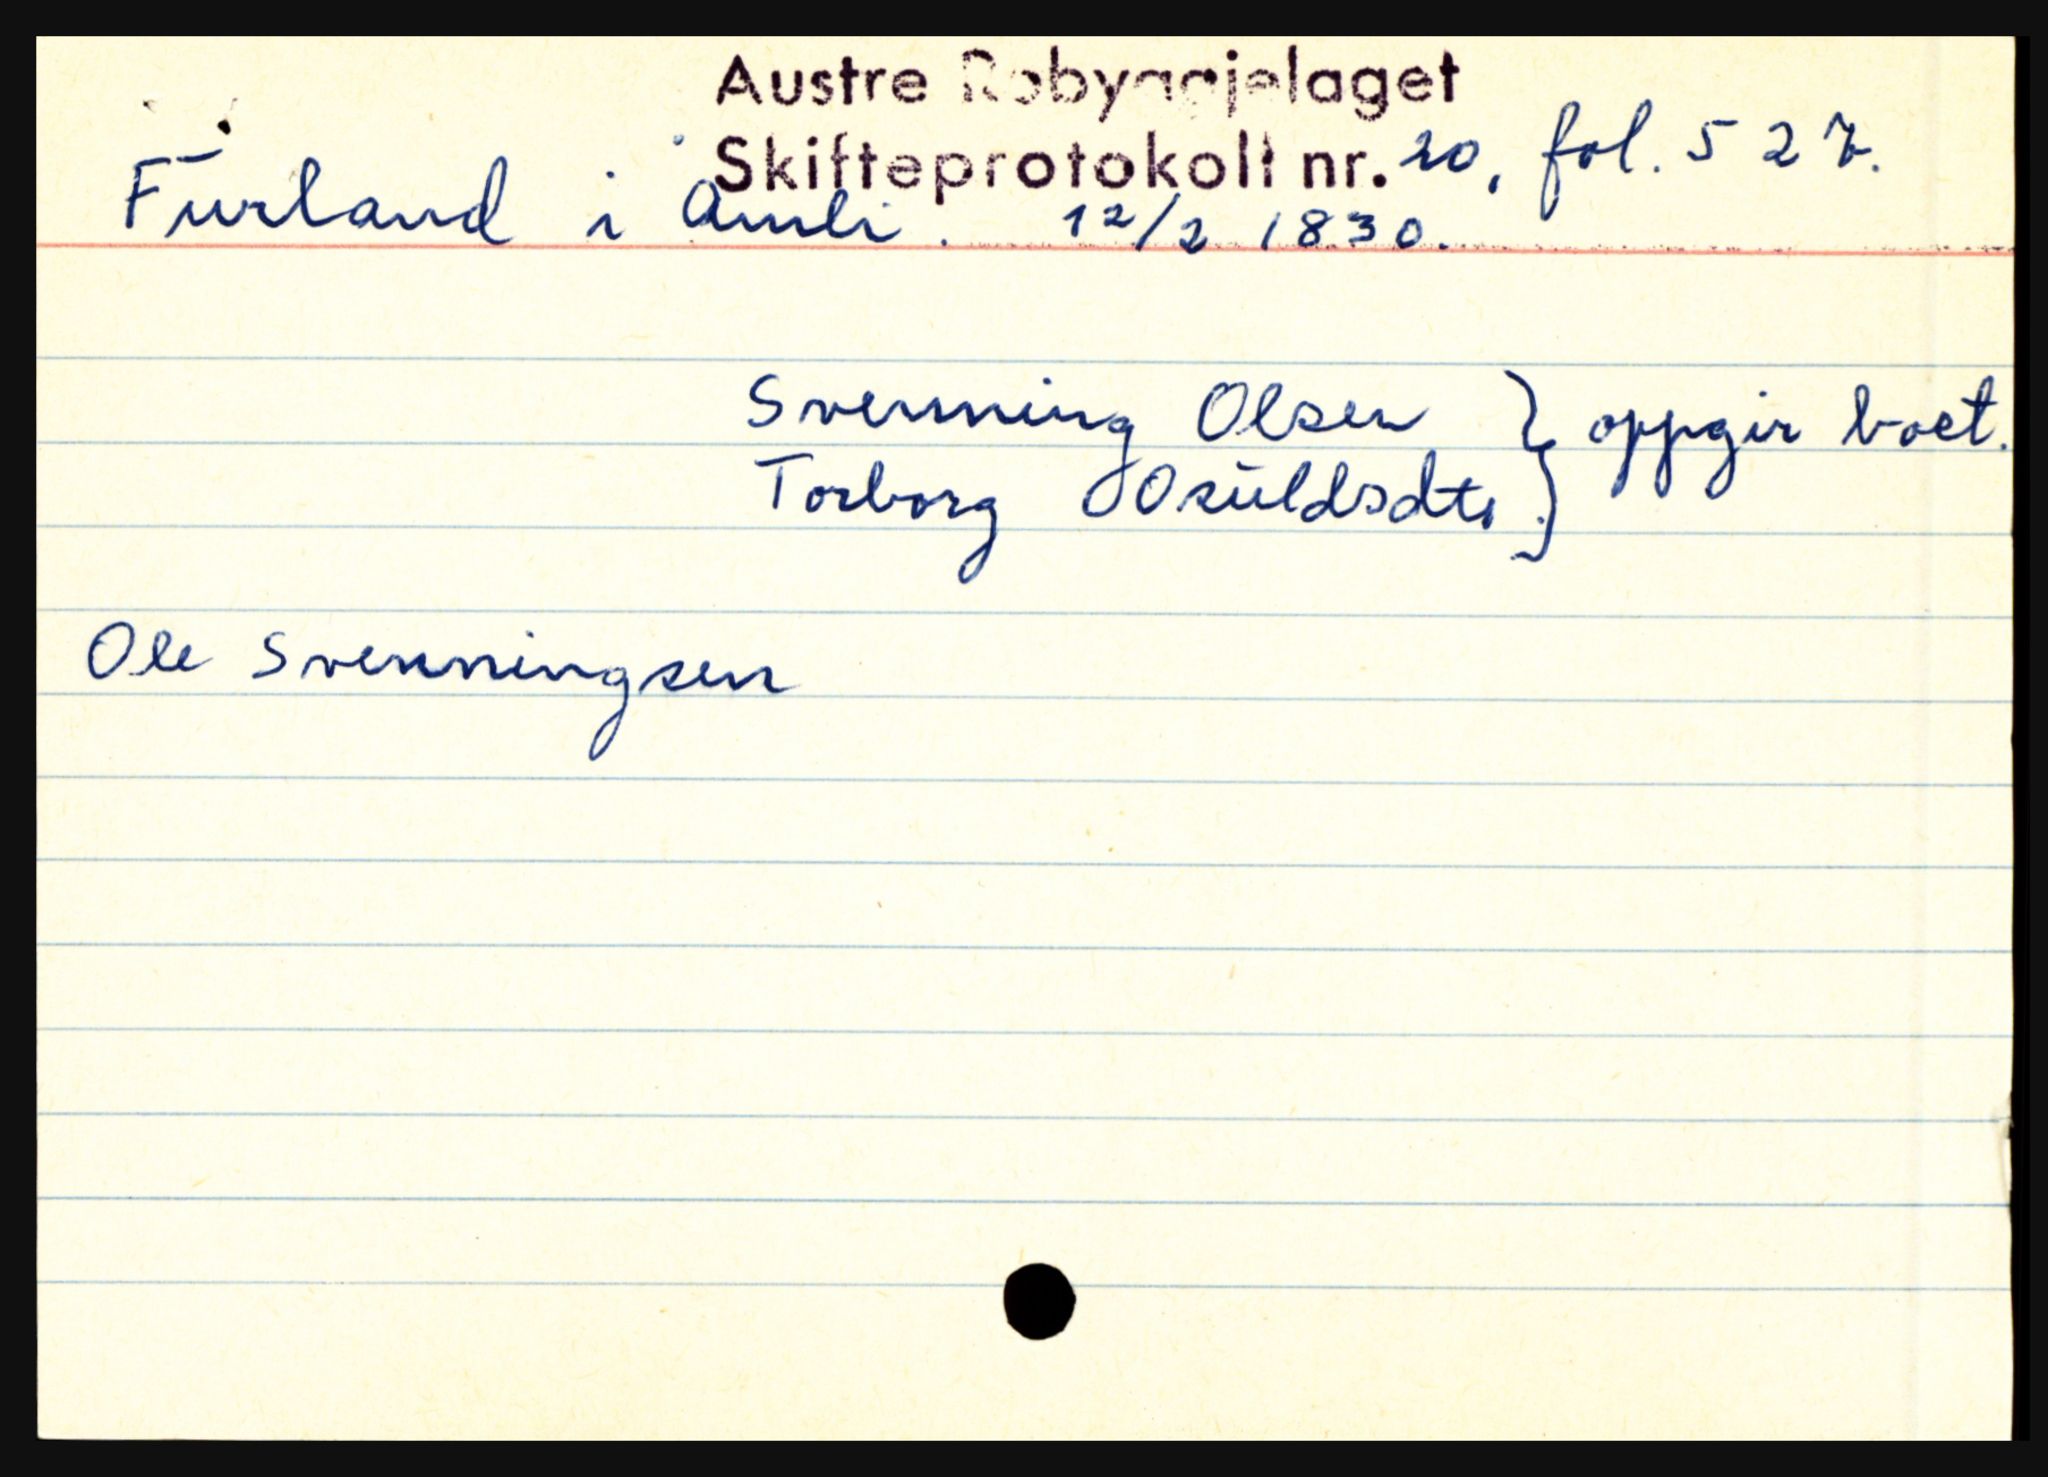 Austre Robyggjelaget
Skifteprotokoll nr. 20, fol. 527.
Furland i Åmli. 12/2 1830.
Svenning Olsen } oppgir boet.
Torborg Osuldsdtr. }
Ole Svenningsen